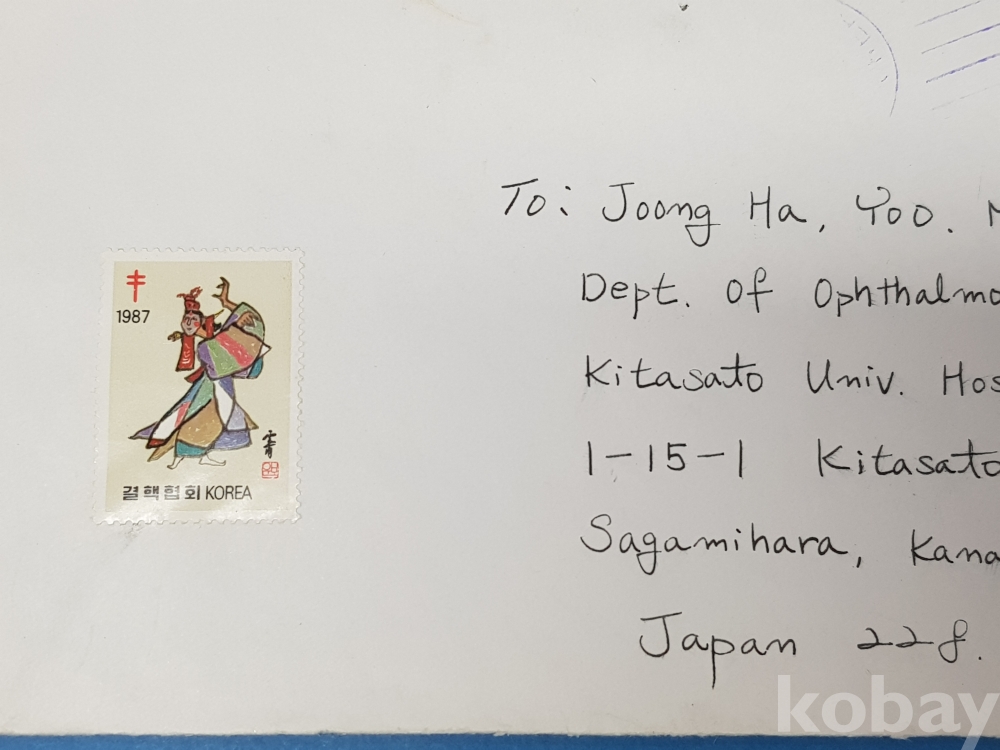 1987
결핵협회 KOREA
To: Joong Ha, Yoo.
Dept. of Ophthalmo
Kitasato Univ. Hos
1-15-1 Kitasato
Sagamihara, Kana
Japan 228.
kobay